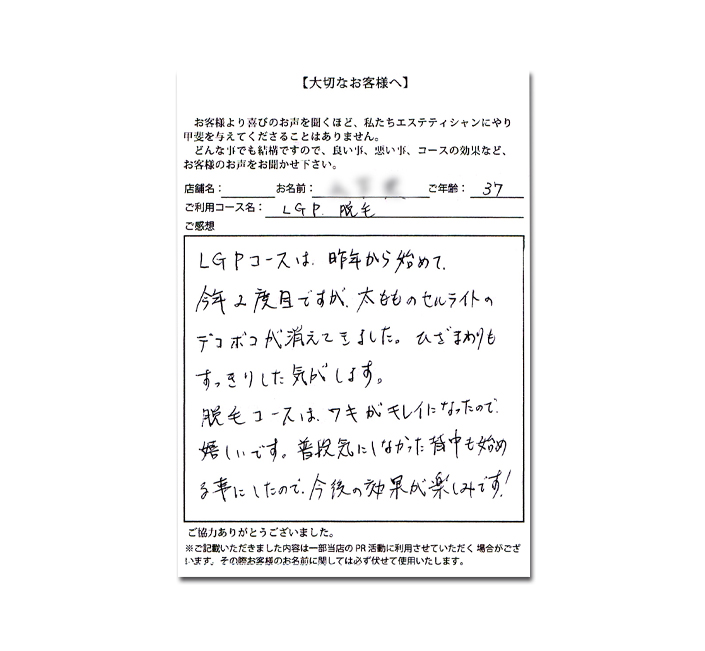 【大切なお客様へ】
お客様より喜びのお声を聞くほど、私たちエステティシャンにやり
甲斐を与えてくださることはありません。
どんな事でも結構ですので、良い事、悪い事、コースの効果など、
お客様のお声をお聞かせ下さい。
店舗名： お名前： ご年齢： 37
ご利用コース名： LGP. 脱毛
ご感想
LGPコースは、昨年から始めて、
今年2度目ですが、太もものセルライトの
デコボコが消えてきました。ひざまわりも
すっきりした気がします。
脱毛コースは、ワキがキレイになったので、
嬉しいです。普段気にしなかった背中も始め
る事にしたので、今後の効果が楽しみです!
ご協力ありがとうございました。
※ご記載いただきました内容は一部当店のPR活動に利用させていただく場合がござ
います。その際お客様のお名前に関しては必ず伏せて使用いたします。